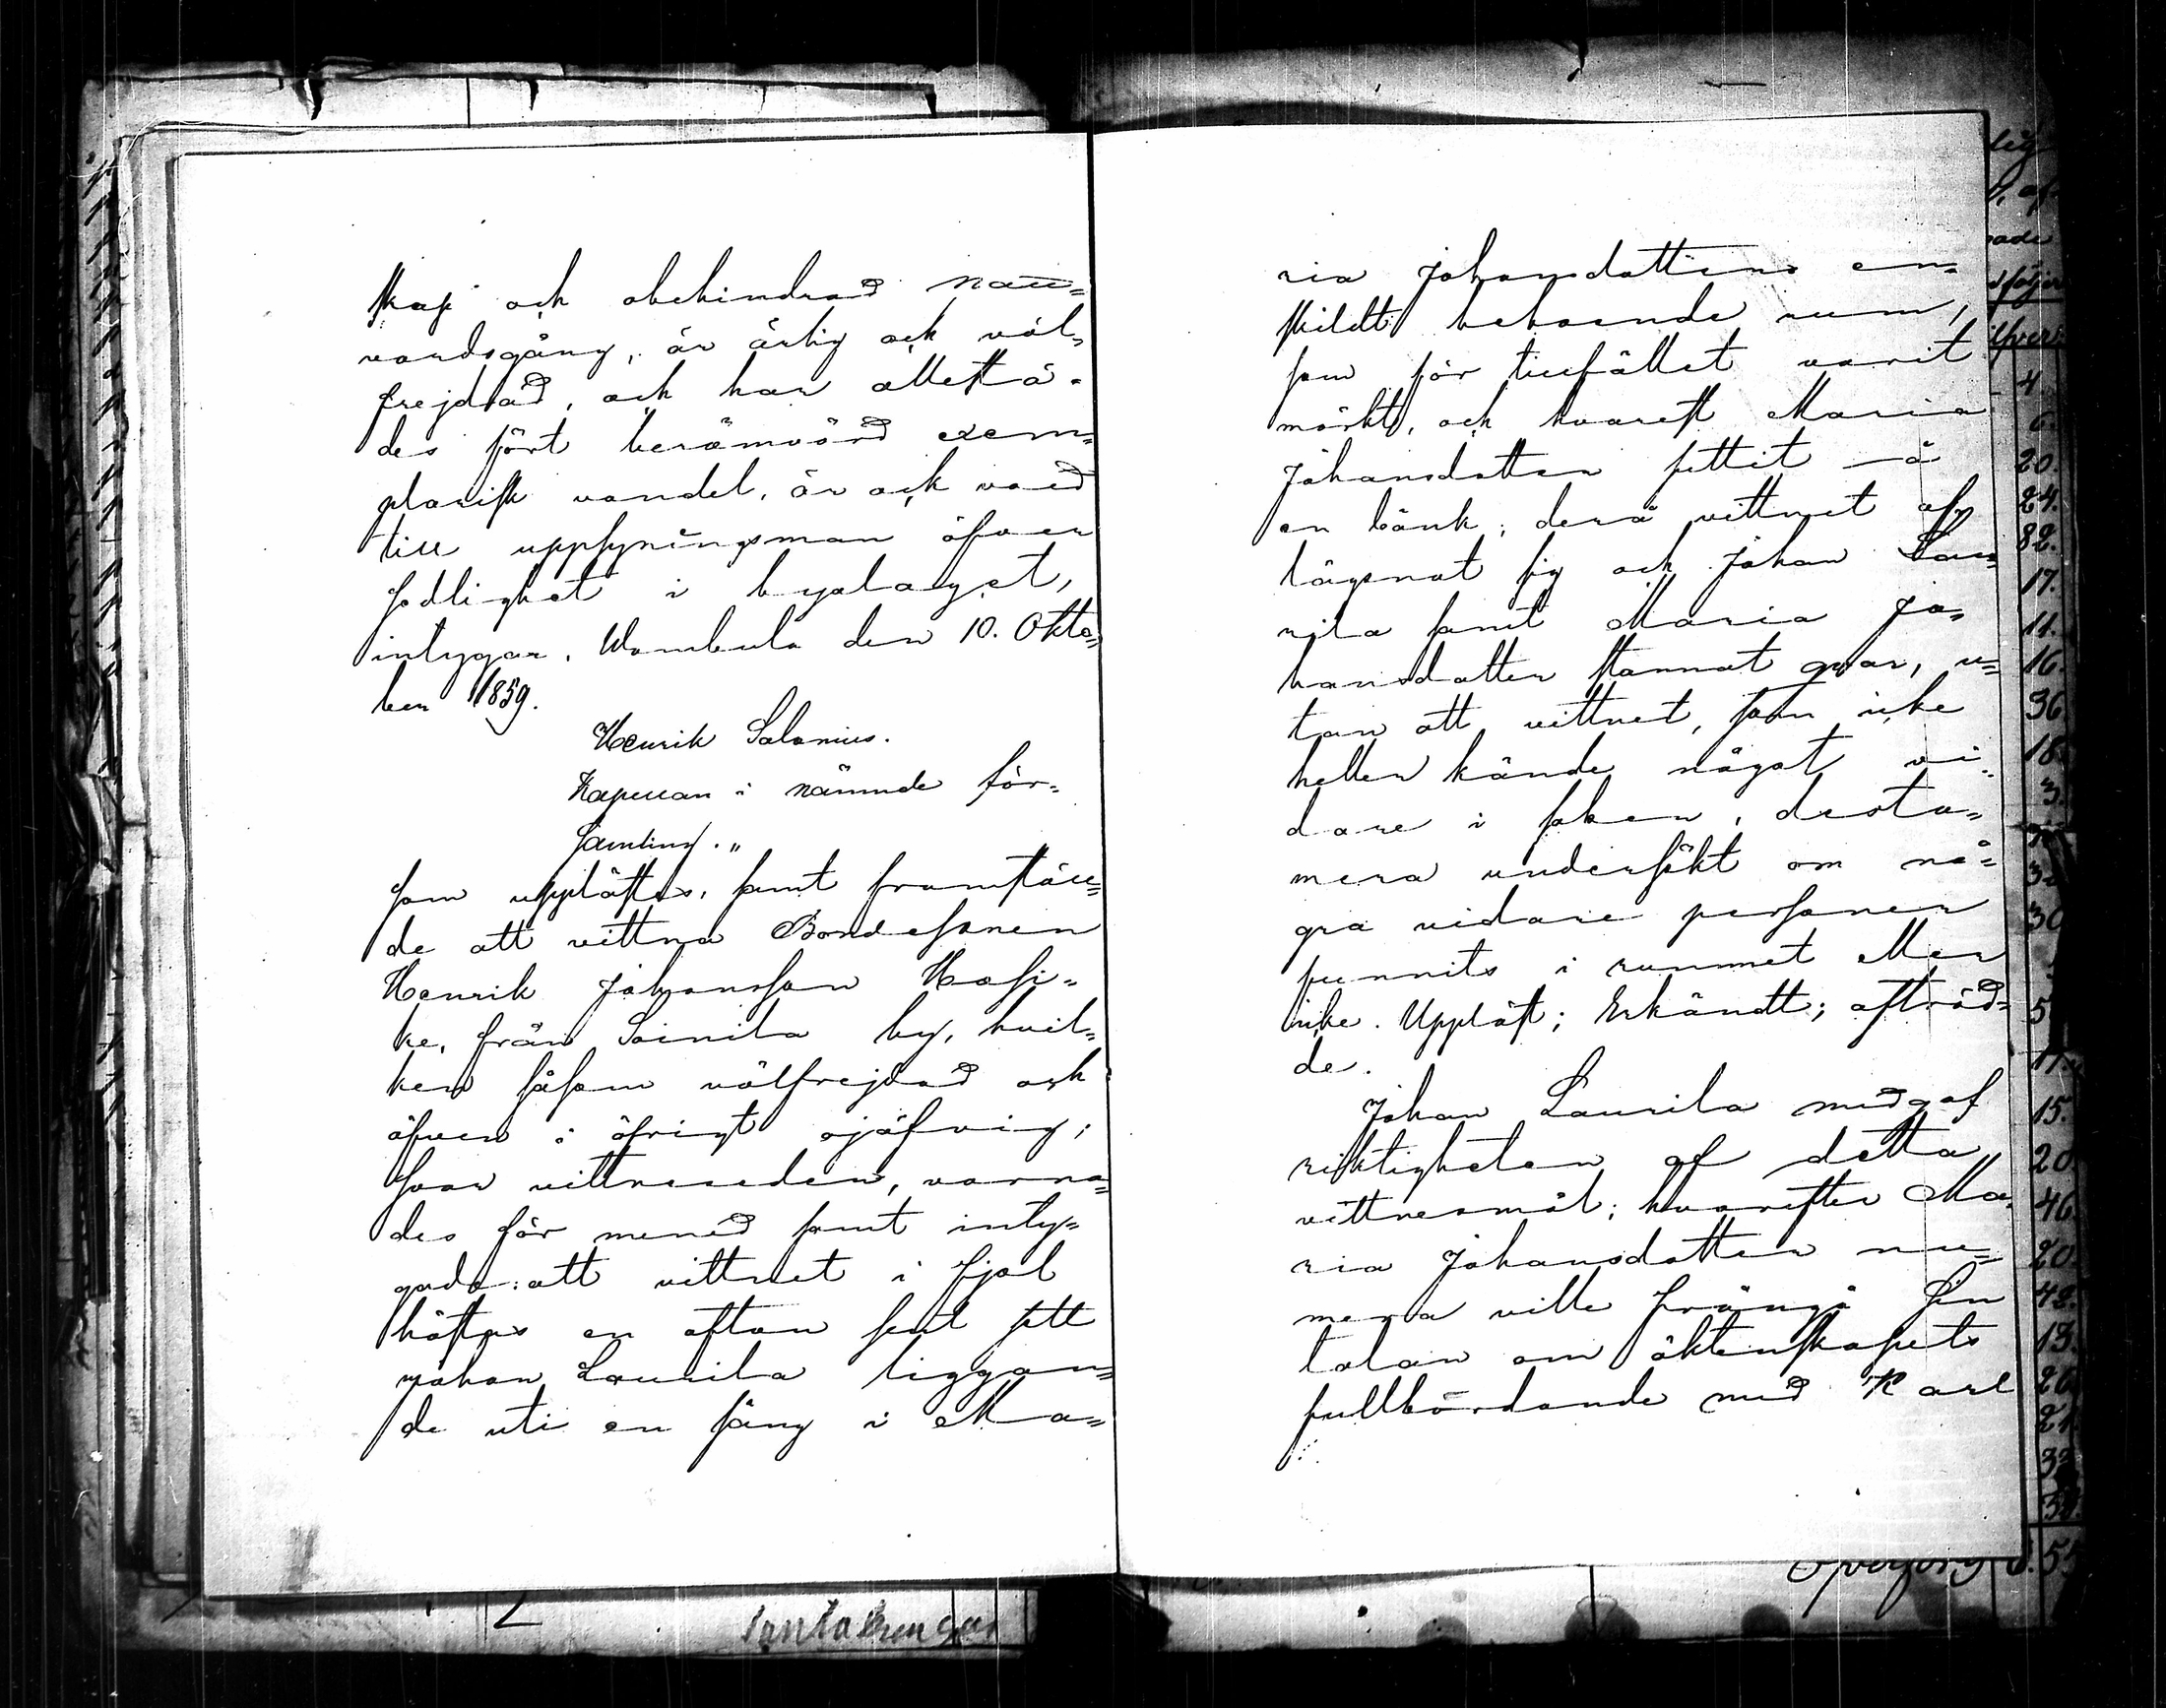 skap och obehindrad natt=
vardsgång, är ärlig och väl=
frejdad, och har allestä=
des fört berömvärd exem=
plarisk vandel, är ock vald
till uppsyningsman öfver
sedlighet i byalaget,
intygar. Wambula den 10. Okto=
ber 1859.
Henrik Salonius.
Kapellan i nämnde för=
samling."
som upplästes, samt framstäl=
de att vittna Bondesonen
Henrik Johansson Hasi=
ke, från Soinila by, hvil=
ken såsom välfrejdad och
äfven i öfrigt ojäfvig;
svor vittneseden, varna=
des för mened samt inty=
gade: att vittnet i fjol
höstas en afton sent sett
Johan Laurila liggan=
de uti en säng i Ma=
ria Johansdotters en=
skildt beboende rum,
som för tillfället varit
mörkt, och hvarest Maria
Johansdotter suttit på
en bänk; derå vittnet af=
lägsnat sig och Johan Lau=
rila samt Maria Jo=
hansdotter stannat qvar, u=
tan att vittnet, som icke
heller kände något vi=
dare i saken, desto=
mera undersökt om nå=
gra vidare personer
funnits i rummet eller
icke. Uppläst; Erkändt; afträd=
de.
Johan Laurila medgaf
riktigheten af detta
vittnesmål; hvarefter Ma=
ria Johansdotter nu=
mera ville frångå sin
talan om äktenskapets
fullbordande med Karl